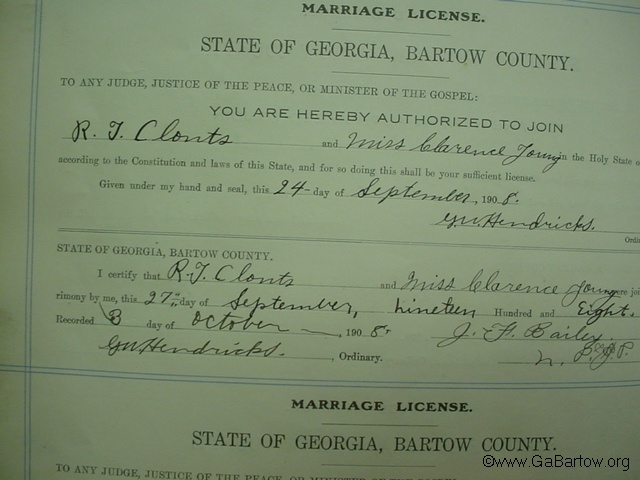 MARRIAGE LICENSE.
STATE OF GEORGIA, BARTOW COUNTY.
TO ANY JUDGE, JUSTICE OF THE PEACE, OR MINISTER OF THE GOSPEL:
YOU ARE HEREBY AUTHORIZED TO JOIN
R. T. Clonts and Miss Clarence Young in the Holy State o
according to the Constitution and laws of this State, and for so doing this shall be your sufficient license.
Given under my hand and seal, this 24 day of September, 1908.
G.W. Hendricks.
Ordi
STATE OF GEORGIA, BARTOW COUNTY.
I certify that R.T. Clonts and Miss Clarence Young were joi
rimony by me, this 27th day of September, nineteen Hundred and Eight.
Recorded 3 day of October, 1908. J. F. Bailey
GW Hendricks., Ordinary. J.P.
MARRIAGE LICENSE.
STATE OF GEORGIA, BARTOW COUNTY.
TO ANY JUDGE, JUSTICE OF THE PEACE, OR MINISTER OF THE GOSPEL:
©www.GaBartow.org